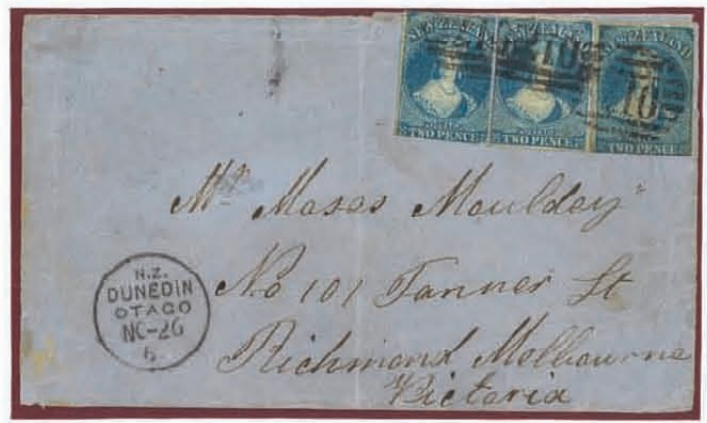 NEW ZEALAND
NEW ZEALAND
NEW ZEALAND
TWO PENCE
TWO PENCE
TWO PENCE
Mr Moses Moulday
No 101 Tanner St
Richmond Melbourne
Victoria
N.Z.
DUNEDIN
OTAGO
NC-26